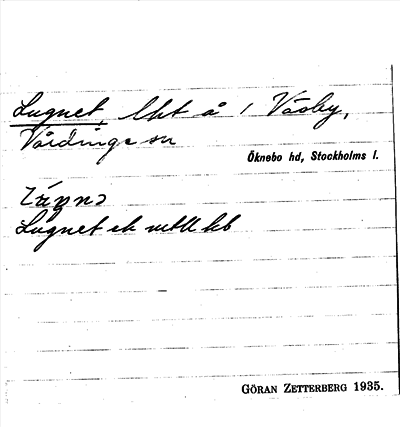 Lugnet, lht å 1 Väsby,
Vårdinge sn
Öknebo hd, Stockholms l.
Lugnet ek
GÖRAN ZETTERBERG 1935.